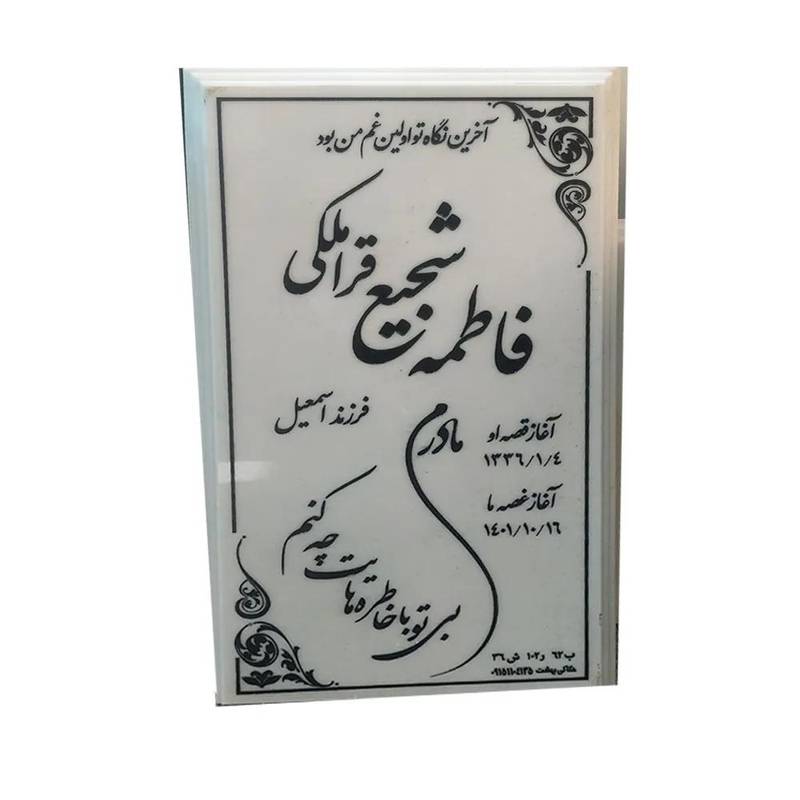 آخرین نگاه تو اولین غم من بود
فاطمه شجیع قراملکی
فرزند اسمعیل
آغاز قصه او
۱۳۳۶/۱/۴
آغاز غصه ما
۱۴۰۱/۱۰/۱۶
مادرم
بی تو با خاطره هایت چه کنم
ب ۶۲ و ۱۰۲ ش ۳۶
بهشت ۰۹۱۵۱۱۰۴۱۳۵